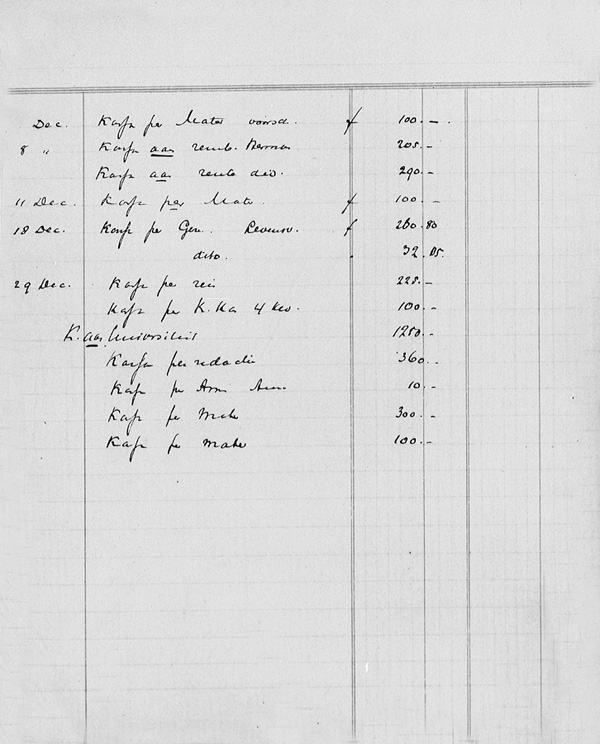 Dec. Kassa per Mater voorsch. f 100.-.
8 " Kassa aan rente Herman 205.-
Kassa aan rente div. 290.-
11 Dec. Kassa per Mater f 100.-
18 Dec. Kassa per Gem. f 260.80
dito. 32.05.
29 Dec. Kassa per reis 228.-
Kassa per K. Ka 4 kw. 100.-
K. aan Universiteit 1250.-
Kassa per redactie 360.-
Kassa per 10.-
Kassa per Mater 300.-
Kassa per Mater 100.-